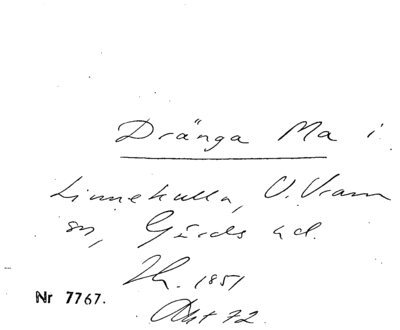 Dränga Ma i
Linnekulla, V. Vram
sn, Gärds hd.
Th. 1851
Akt 72
Nr 7767.